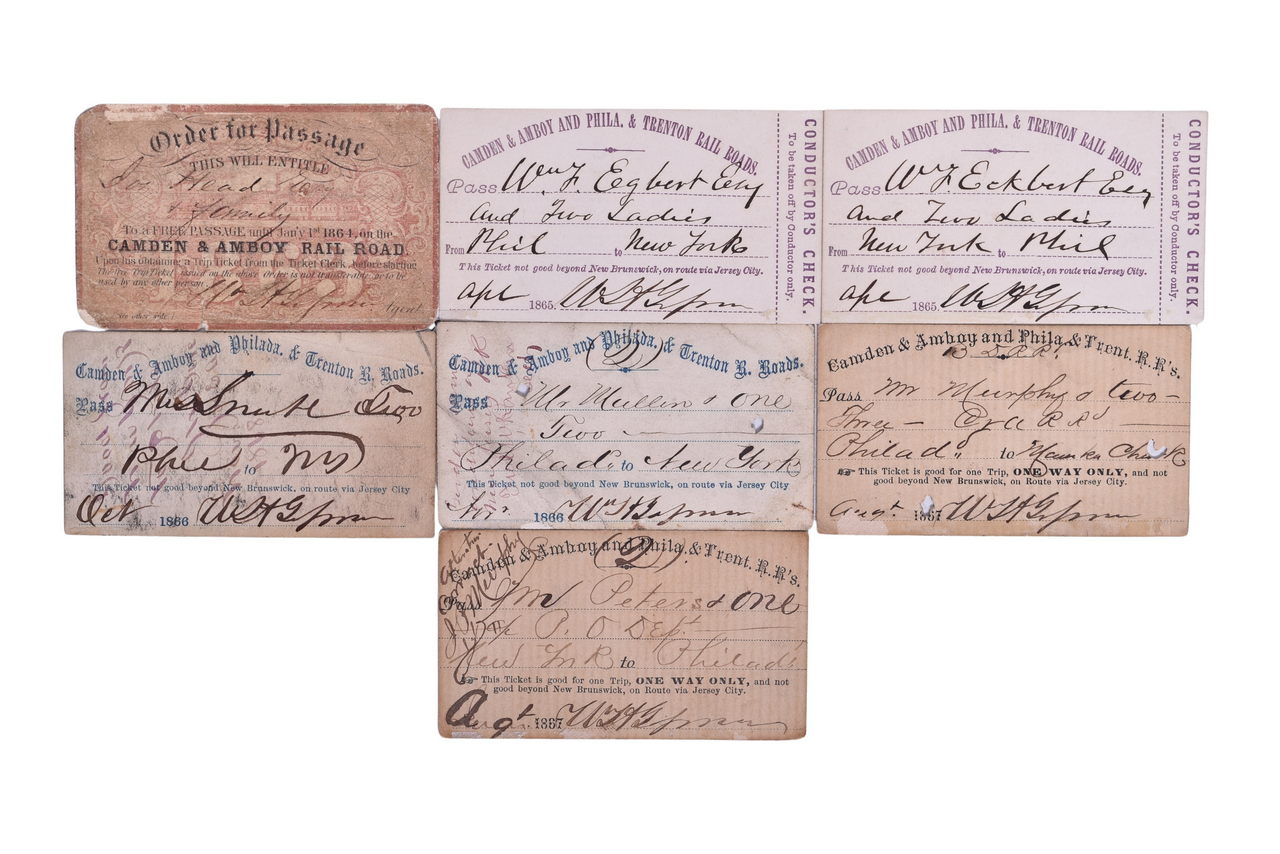 Order for Passage
THIS WILL ENTITLE
& family
To a FREE PASSAGE until Jan'y 1st 1864, on the
CAMDEN & AMBOY RAIL ROAD.
Upon his obtaining a Trip Ticket from the Ticket Clerk, before starting
The free Trip Ticket issued on the above Order is not transferable, or to be
used by any other person.
Agent.
See other side.
CAMDEN & AMBOY AND PHILA. & TRENTON RAIL ROADS.
Pass Wm F. Egbert Esq
and Two Ladies
From Phil to New York
This Ticket not good beyond New Brunswick, on route via Jersey City.
Apl 1865. WH Gipson
CONDUCTOR'S CHECK.
To be taken off by Conductor only.
CAMDEN & AMBOY AND PHILA. & TRENTON RAIL ROADS.
Pass W F Eckbert Esq
and Two Ladies
From New York to Phil
This Ticket not good beyond New Brunswick, on route via Jersey City.
Apl 1865. WH Gipson
CONDUCTOR'S CHECK.
To be taken off by Conductor only.
Camden & Amboy and Philada. & Trenton R. Roads.
Pass Two
Phil to NY
This Ticket not good beyond New Brunswick, on route via Jersey City
Oct 1866 WH Gipson
Camden & Amboy and Philada. & Trenton R. Roads.
(D)
Pass Mr Mullin & one
Two
Philada. to New York
This Ticket not good beyond New Brunswick, on route via Jersey City
1866
Camden & Amboy and Phila. & Trent. R. R's.
Pass Mr Murphy & two
Three
Philada. to Mauch Chunk
This Ticket is good for one Trip, ONE WAY ONLY, and not
good beyond New Brunswick, on Route via Jersey City.
Augt 1867 WH Gipson
Camden & Amboy and Phila. & Trent. R. R's.
(D)
Pass Peters & one
P. O Dept
New York to Philada
This Ticket is good for one Trip, ONE WAY ONLY, and not
good beyond New Brunswick, on Route via Jersey City.
Augt 1867 WH Gipson